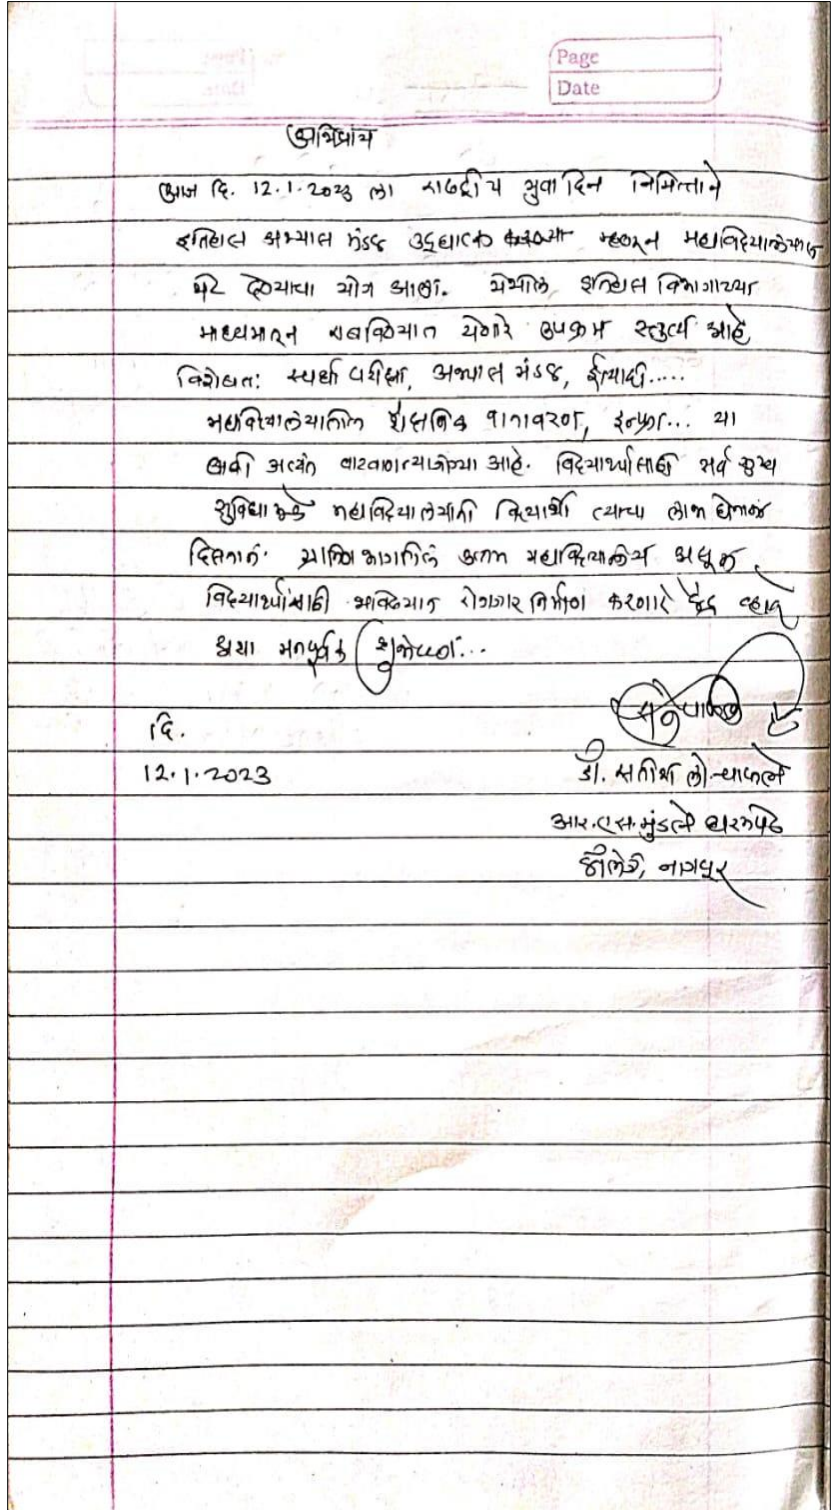 Page
Date
अभिप्राय
आज दि. 12.1.2023 ला राष्ट्रीय युवा दिन निमित्ताने
इतिहास अभ्यास मंडळ उद्घाटक म्हणून महाविद्यालयास
भेट देण्याचा योग आला. येथील इतिहास विभागाच्या
माध्यमातून राबविण्यात येणारे उपक्रम स्तुत्य आहे
विशेषतः स्पर्धा परीक्षा, अभ्यास मंडळ, ईत्यादी.....
महाविद्यालयातील शैक्षणिक वातावरण, इन्फ्रा... या
बाबी अत्यंत वाखाणण्याजोग्या आहे. विद्यार्थ्यांसाठी सर्व सुख
सुविधा मुळे महाविद्यालयाती विद्यार्थी त्याचा लाभ घेताना
दिसतात. ग्रामिण भागातील उत्तम महाविद्यालय असून
विद्यार्थ्यांसाठी भविष्यात रोजगार निर्माण करणारे केंद्र व्हावे
अशा मनपूर्वक शुभेच्छा...
दि.
12.1.2023
डॉ. सतीश लो. चाफले
आर.एस.मुंडले धरमपेठ
कॉलेज, नागपूर